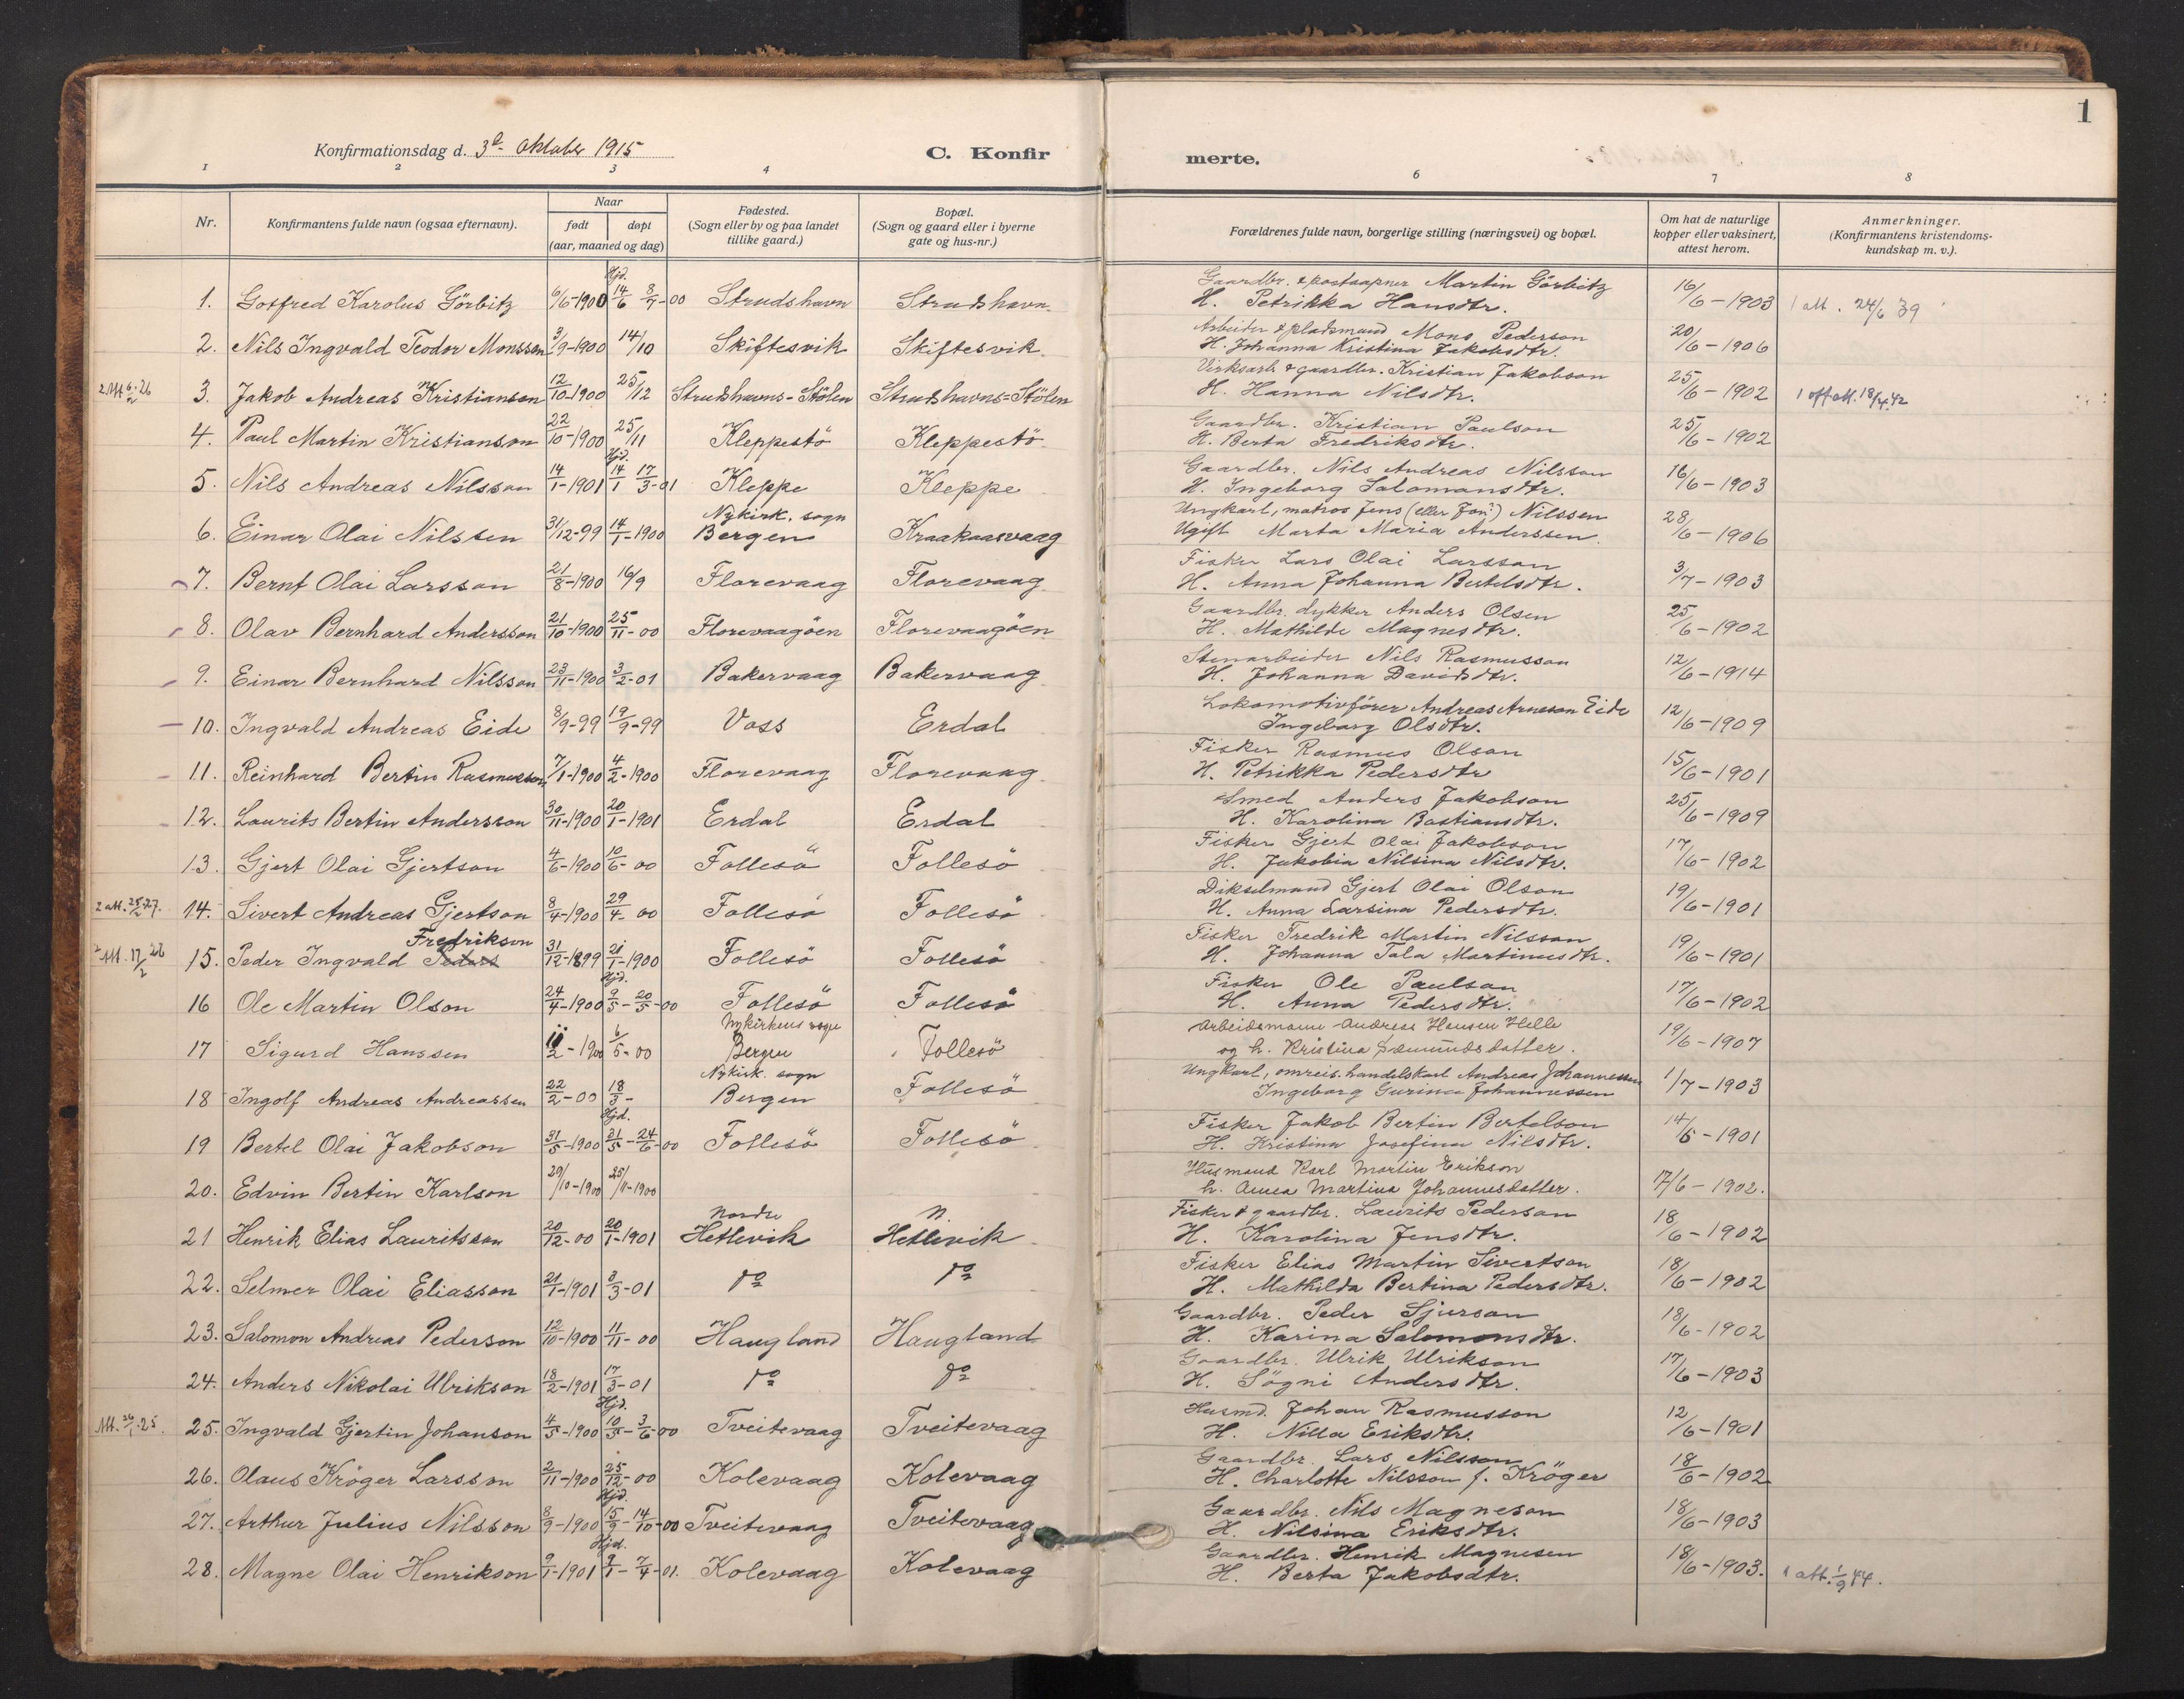 1
Konfirmationsdag d. 3d. Oktober 1915
C. Konfirmerte.
1 2 3 4 6 7 8
Nr. Konfirmantens fulde navn (ogsaa efternavn). Naar født døpt (aar, maaned og dag) Fødested. (Sogn eller by og paa landet tillike gaard.) Bopæl. (Sogn og gaard eller i byerne gate og hus-nr.) Forældrenes fulde navn, borgerlige stilling (næringsvei) og bopæl. Om hat de naturlige kopper eller vaksinert, attest herom. Anmerkninger. (Konfirmantens kristendomskundskap m. v.).
1. Gotfred Karolus Görbitz 6/6-1900 Hjd. 14/6 8/7-00 Strudshavn Strudshavn. Gaardbr. & postaapner Martin Görbitz H. Petrikka Hansdtr. 16/6-1903 1 att. 24/6 39
2. Nils Ingvald Teodor Monsson 3/9-1900 14/10 Skiftesvik Skiftesvik. Arbeider & pladsmand Mons Pederson H. Johanna Kristina Jakobsdtr. 20/6-1906
2 Att 6/2-26 3. Jakob Andreas Kristianson 12/10-1900 25/12 Strudshavns-Stölen Strudshavns=Stölen Virksarb. & gaardbr. Kristian Jakobson H. Hanna Nilsdtr. 25/6-1902 1 off att. 18/4.42
4. Paul Martin Kristianson 22/10-1900 25/11 Kleppestö Kleppestö. Gaardbr. Kristian Paulson H. Berta Fredriksdtr. 25/6-1902
5. Nils Andreas Nilsson 14/1-1901 Hjd. 14/1 17/3-01 Kleppe Kleppe Gaardbr. Nils Andreas Nilsson H. Ingeborg Salomonsdtr. 16/6-1903
6. Einar Olai Nilssen 31/12-99 14/1-1900 Nykirk. sogn Bergen Kraakaasvaag Ungkarl, matros Jens (eller Jon?) Nilssen Ugift Marta Maria Anderssen. 28/6-1906
7. Bernt Olai Larsson 21/8-1900 16/9 Florevaag Florevaag. Fisker Lars Olai Larsson H. Anna Johanna Bertelsdtr. 3/7-1903
8. Olav Bernhard Andersson 21/10-1900 25/11-00 Florevaagöen Florevaagöen Gaardbr. dykker Anders Olsen H. Mathilde Magnesdtr. 25/6-1902
9. Einar Bernhard Nilsson 23/11-1900 3/2-01 Bakervaag Bakervaag. Stenarbeider Nils Rasmusson H. Johanna Davidsdtr. 12/6-1914
10. Ingvald Andreas Eide 8/9-99 19/9-99 Voss Erdal Lokomotivförer Andreas Arneson Eide Ingeborg Olsdtr. 12/6-1909
11. Reinhard Bertin Rasmusson 7/1-1900 4/2-1900 Florevaag Florevaag. Fisker Rasmus Olson H. Petrikka Pedersdtr 15/6-1901
12. Laurits Bertin Andersson 30/11-1900 20/1-1901 Erdal Erdal Smed Anders Jakobson H. Karolina Bastiansdtr. 25/6-1909
13. Gjert Olai Gjertson 4/6-1900 10/6-00 Follesö Follesö Fisker Gjert Olai Jakobson H. Jakobia Nilsina Nilsdtr. 17/6-1902
2 att. 25/2 27. 14. Sivert Andreas Gjertson 8/4-1900 29/4-00 Follesö Follesö Dikselmand Gjert Olai Olson H. Anna Larsina Pedersdtr. 19/6-1901
2 Att. 17/2 26 15. Peder Ingvald Peders Fredrikson 31/12-1899 21/1-1900 Follesö Follesö Fisker Fredrik Martin Nilsson H. Johanna Tala Martinusdtr. 19/6-1901
16 Ole Martin Olson 24/4-1900 Hjd. 9/5-20/5-00 Follesö Follesö Fisker Ole Paulson H. Anna Pedersdtr. 17/6-1902
17 Sigurd Hanssen 11/2-1900 6/5-00 Nykirkens sogn Bergen Follesö Arbeidsmann Andreas Hansen Helle og h. Kristina Sæmundsdatter. 19/6-1907
18 Ingolf Andreas Andreassen 22/2-00 18/3- Nykirk. sogn Bergen Follesö Ungkarl, omreis. handelskarl Andreas Johannessen Ingeborg Gurine Johannessen 1/7-1903
19 Bertel Olai Jakobson 31/5-1900 Hjd. 31/5-24/6-00 Follesö Follesö Fisker Jakob Bertin Bertelson H. Kristina Josefina Nilsdtr. 14/6-1901
20. Edvin Bertin Karlson 29/10-1900 25/11-1900 Husmand Karl Martin Erikson h. Anna Martina Johannesdatter. 17/6-1902.
21 Henrik Elias Lauritsson 20/12-00 20/1-1901 Nordre Hetlevik N. Hetlevik Fisker & gaardbr. Laurits Pederson H. Karolina Jensdtr. 18/6-1902
22. Selmer Olai Eliasson 21/1-1901 3/3-01 do do Fisker Elias Martin Sivertson H. Mathilda Bertina Pedersdtr. 18/6-1902
23. Salomon Andreas Pederson 12/10-1900 11/11-00 Haugland Haugland Gaardbr. Peder Sjurson H. Karina Salomonsdtr. 18/6-1902
24. Anders Nikolai Ulrikson 18/2-1901 17/3-01 do do Gaardbr. Ulrik Ulrikson H. Sögni Andersdtr. 17/6-1903
Att. 26/1.25. 25. Ingvald Gjertin Johanson 4/5-1900 Hjd. 10/5-3/6-00 Tveitevaag Tveitevaag Husmd. Johan Rasmusson H. Nilla Eriksdtr. 12/6-1901
26. Olaus Kröger Larsson 2/11-1900 25/12-00 Kolevaag Kolevaag Gaardbr. Lars Nilsson H. Charlotte Nilsson f. Kröger 18/6-1902
27. Arthur Julius Nilsson 8/9-1900 Hjd. 15/9-14/10-00 Tveitevaag Tveitevaag Gaardbr. Nils Magneson H. Nilsina Eriksdtr. 18/6-1903
28. Magne Olai Henrikson 9/1-1901 Hjd. 9/1-7/4-01. Kolevaag Kolevaag Gaardbr. Henrik Magnesen H. Berta Jakobsdtr. 18/6-1903. 1 att. 1/9 44.